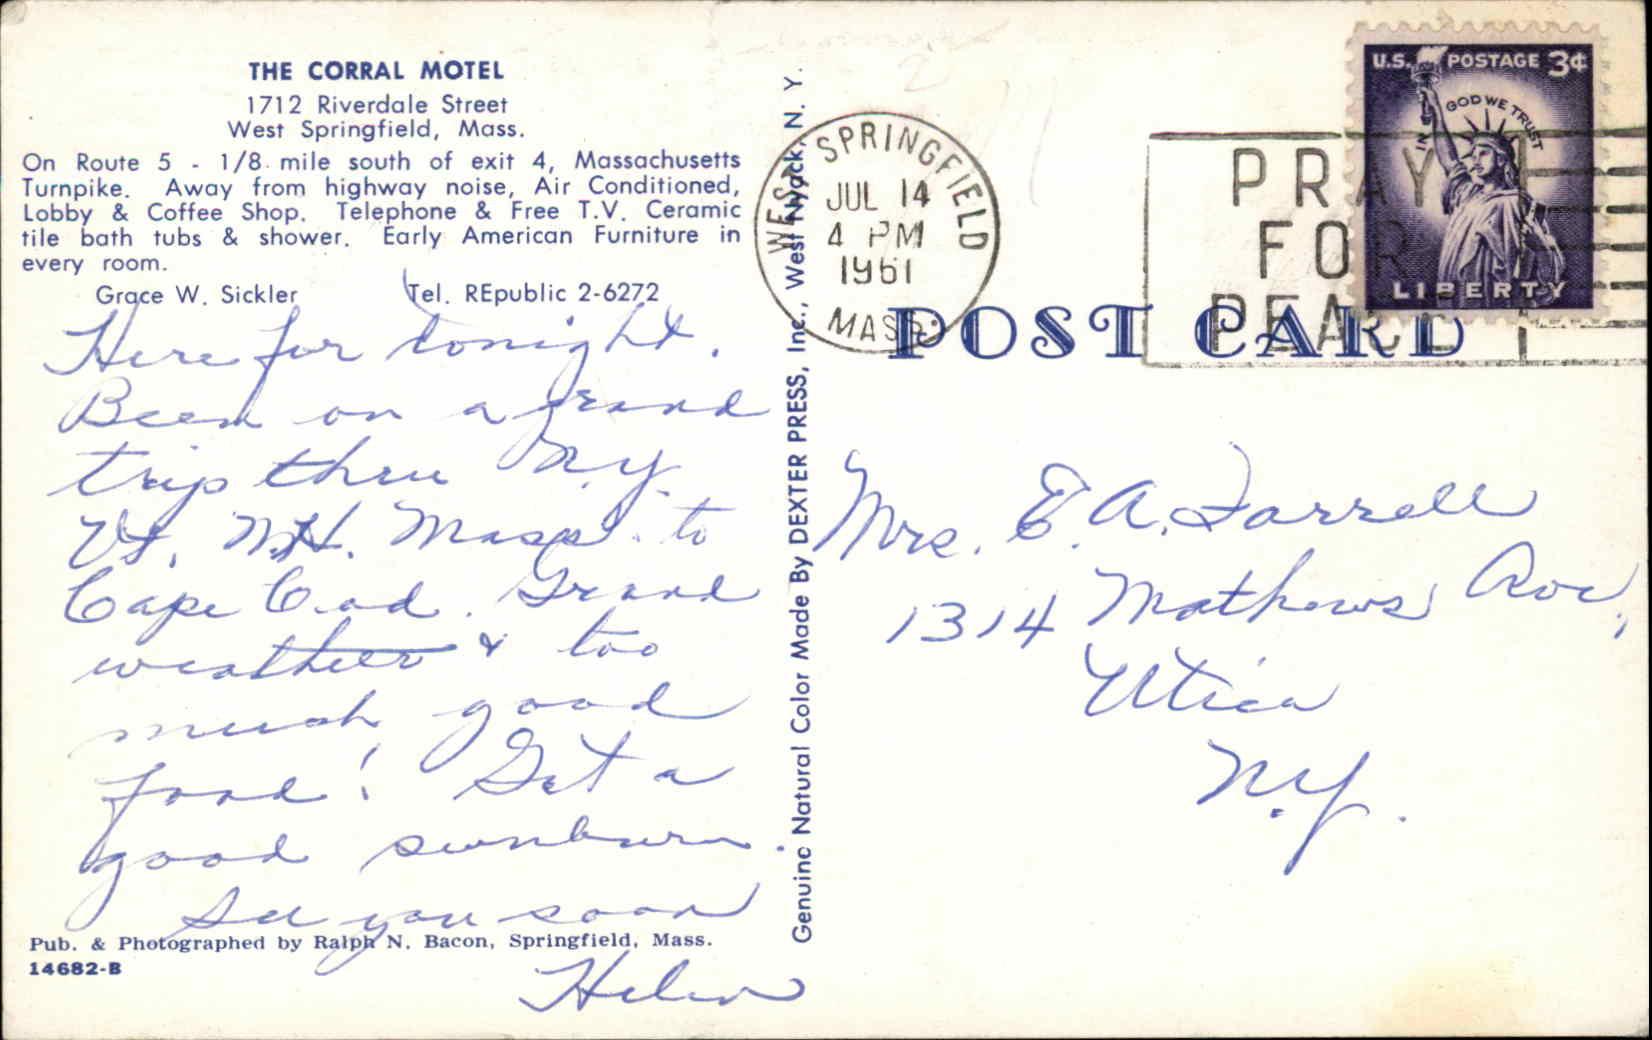 THE CORRAL MOTEL
1712 Riverdale Street
West Springfield, Mass.
On Route 5 - 1/8 mile south of exit 4, Massachusetts
Turnpike. Away from highway noise, Air Conditioned,
Lobby & Coffee Shop. Telephone & Free T.V. Ceramic
tile bath tubs & shower. Early American Furniture in
every room.
Grace W. Sickler Tel. REpublic 2-6272
Here for tonight.
Been on a grand
trip thru N.Y.
Vt. N.H. Mass. to
Cape Cod. Grand
weather & too
much good
food! Got a
good sunburn.
See you soon
Helen
Pub. & Photographed by Ralph N. Bacon, Springfield, Mass.
14682-B
Genuine Natural Color Made By DEXTER PRESS, Inc., West Nyack, N. Y.
WEST SPRINGFIELD
JUL 14
4 PM
1961
MASS.
PRAY
FOR
PEACE
U.S. POSTAGE 3¢
IN GOD WE TRUST
LIBERTY
POST CARD
Mrs. E. A. Farrell
1314 Mathews Ave,
Utica
N.Y.